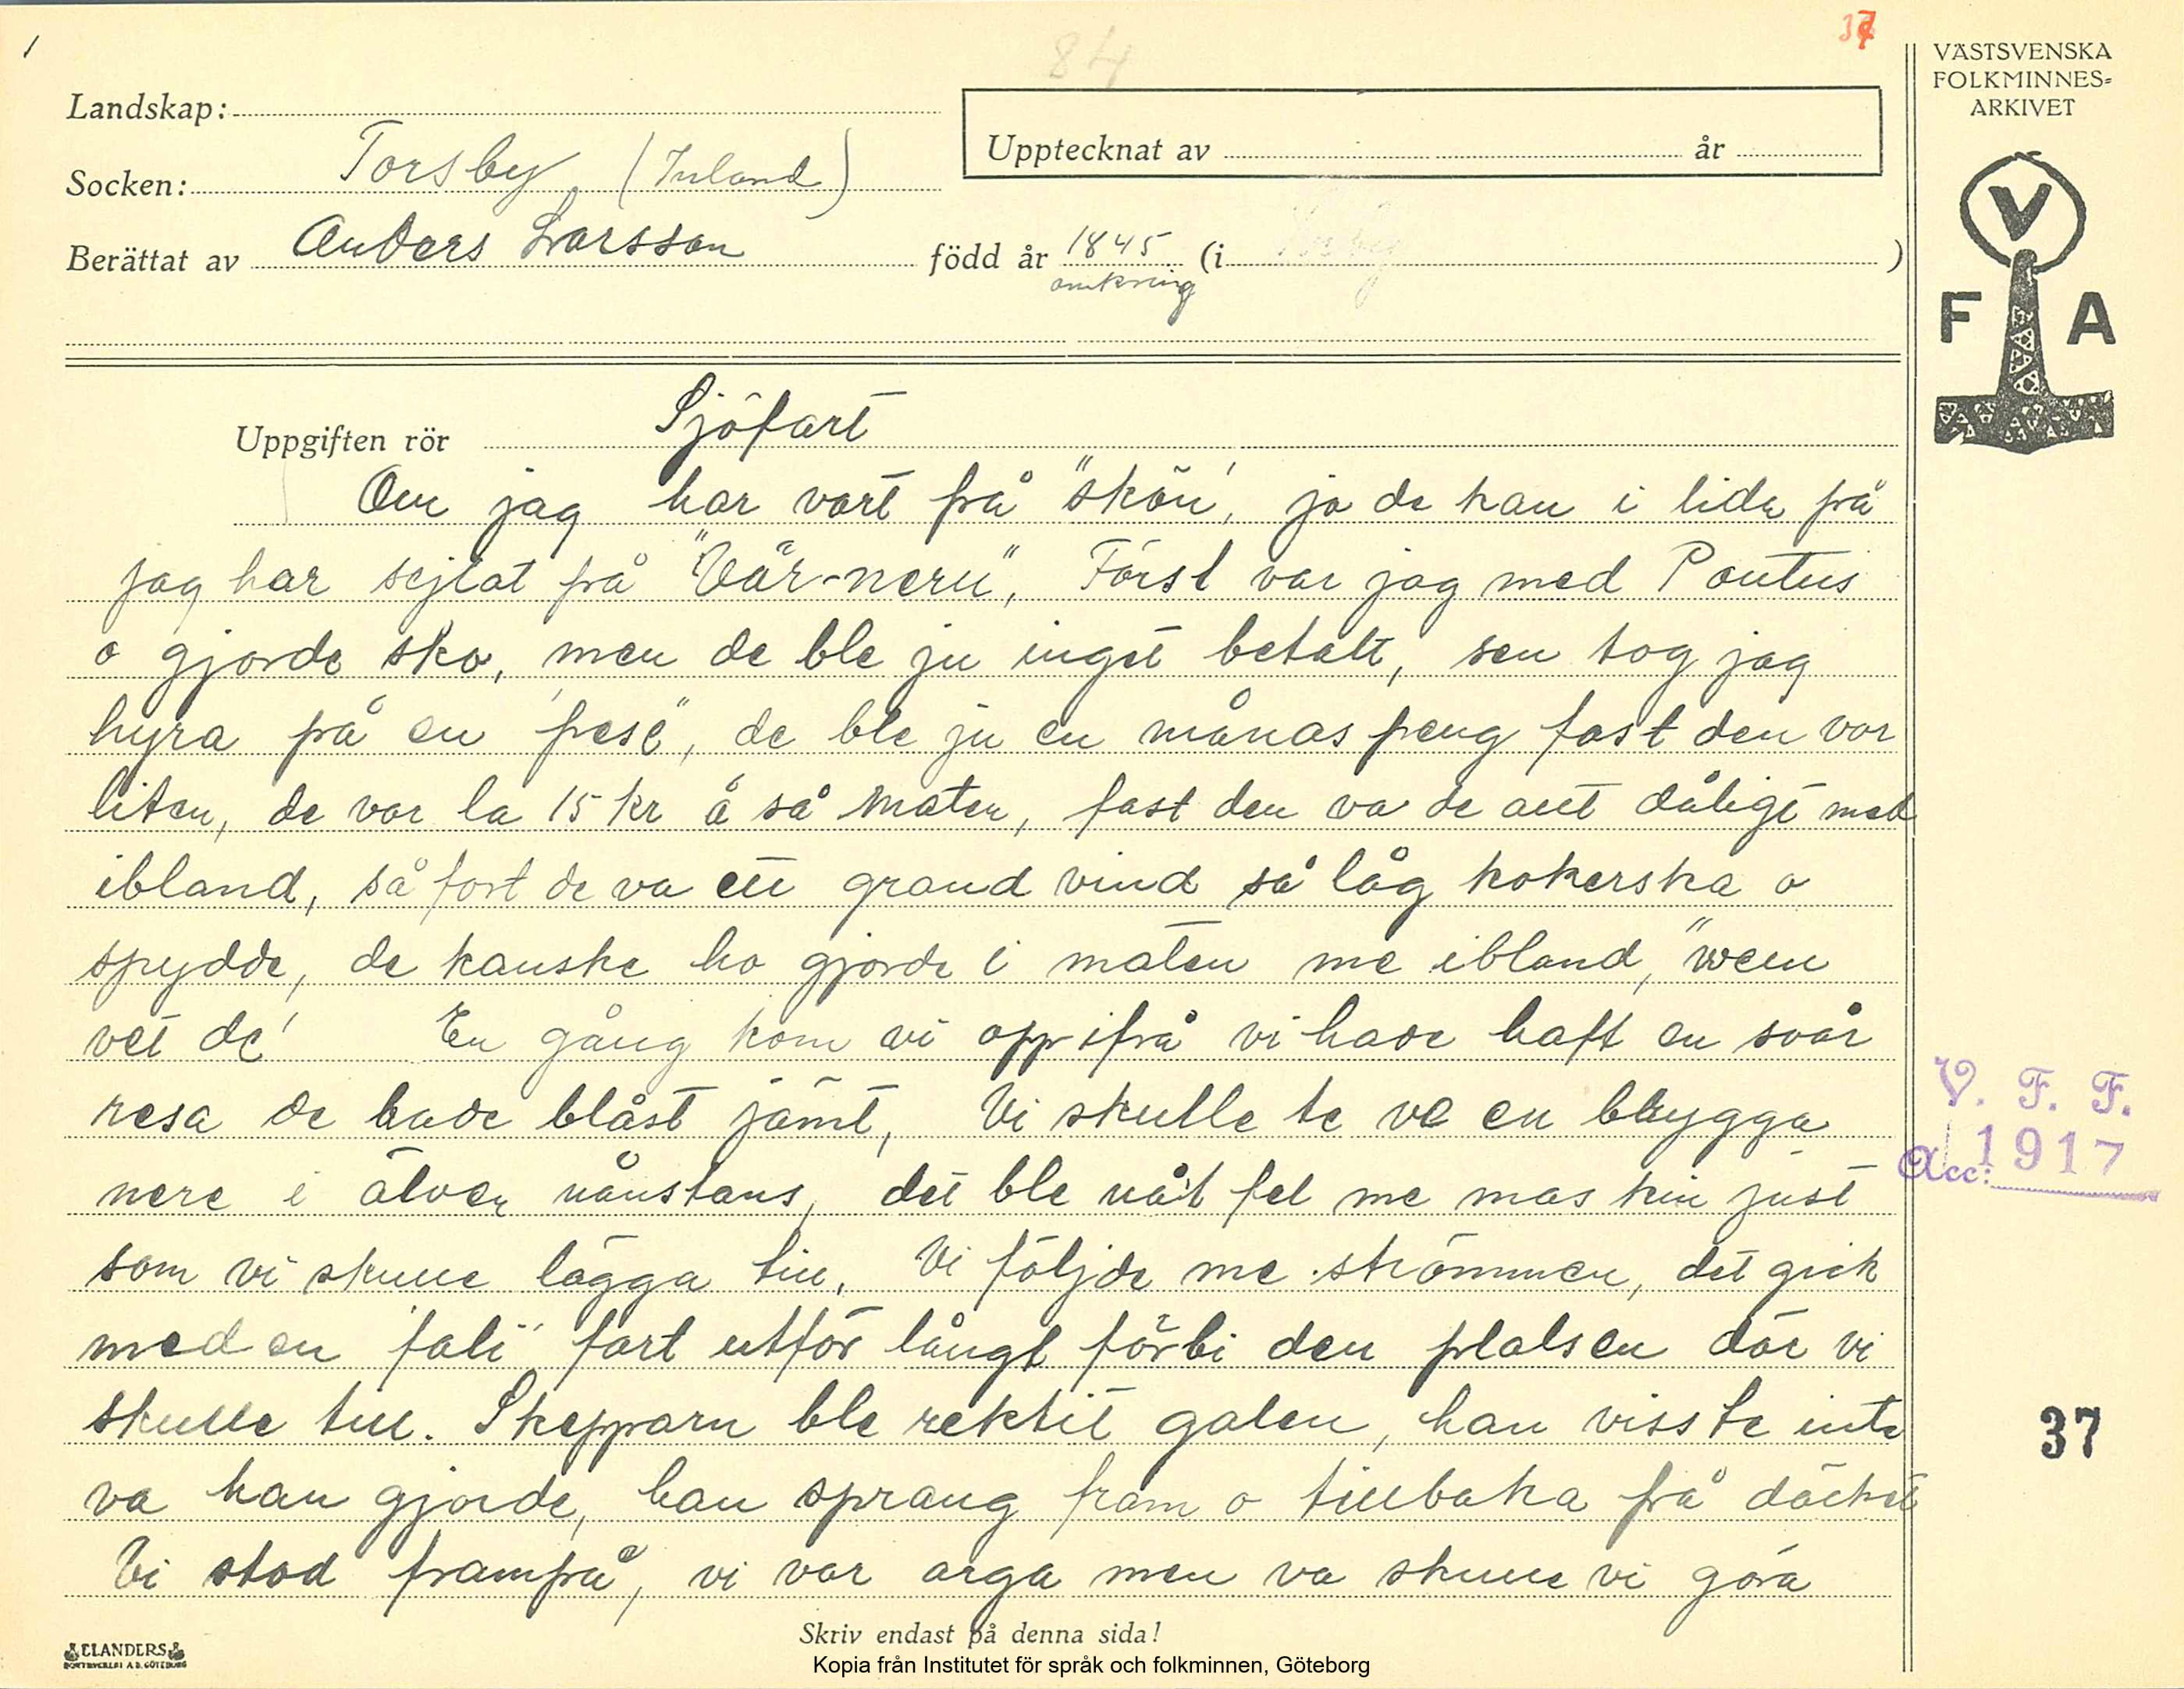 1
84
37
VÄSTSVENSKA
FOLKMINNES-
ARKIVET
V
F A
Landskap:
Upptecknat av år
Socken: Torsby (Inland)
Berättat av Anders Larsson född år 1845 (i Torsby )
omkring
Uppgiften rör Sjöfart
Om jag har vart på "skön', jo de kan i lida på
jag har sejlat på "Vär-nern", Först var jag med Pontus
o gjorde sko, men de ble ju inget betalt, sen tog jag
hyra på en "pese", de ble ju en månas peng fast den var
liten, de var la 15 kr å så maten, fast den va de ant dåligt med
ibland, så fort de va ett grand vind så låg kokerska o
spydde, de kanske ho gjorde i maten me ibland, "wem
vet de' En gång kom vi opp ifrå vi hade haft en svår
resa de hade blåst jämt, Vi skulle te ve en brygga
nere i älven nånstans, det ble nåt fel me maskin just
som vi skulle lägga till. Vi följde me strömmen, det gick
med en "fali" fart utför långt förbi den platsen där vi
skulle till. Skepparn ble rektit galen, han visste inte
va han gjorde, han sprang fram o tillbaka på däcket
Vi stod frampå, vi var arga men va skulle vi göra
V. F. F.
Acc: 1917
37
Skriv endast på denna sida!
ELANDERS
BOKTRYCKERI A.B. GÖTEBORG
Kopia från Institutet för språk och folkminnen, Göteborg